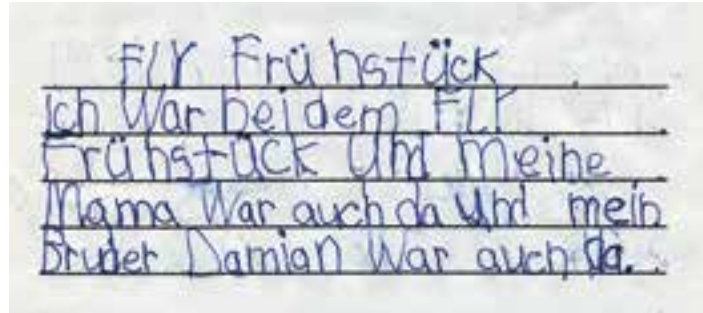 FLY Frühstück
Ich War bei dem FLY
Frühstück Und meine
Mama War auch da Und mein
Bruder Damian War auch da.